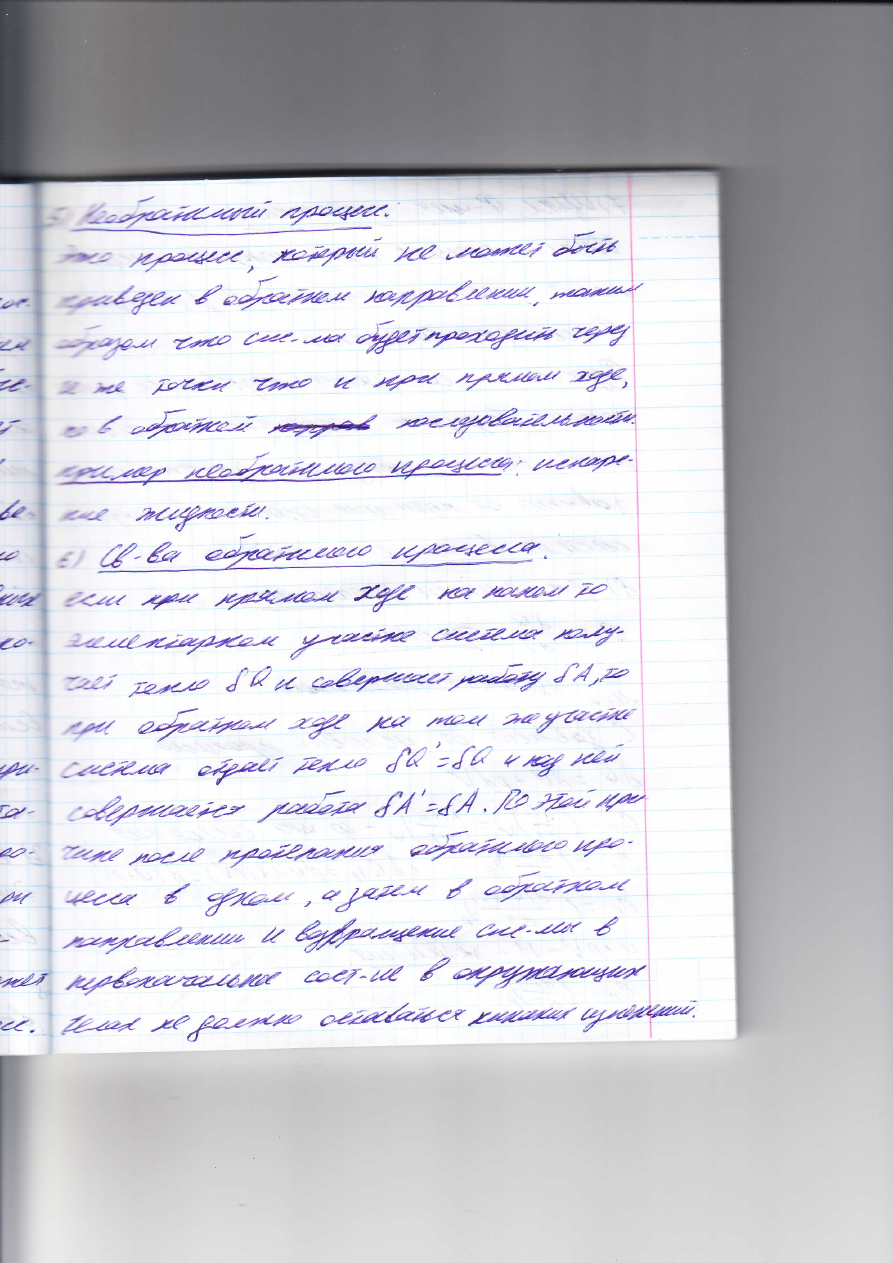 5) Необратимый процесс.
это процесс, который не может быть
приведен в обратном направлении, таким
образом что сис-ма будет проходить через
те же точки что и при прямом ходе,
но в обратной последовательности.
пример необратимого процесса: испаре-
ние жидкости.
6) Св-ва обратимого процесса.
если при прямом ходе на каком то
элементарном участке система полу-
чает тепло δQ и совершает работу δA, то
при обратном ходе на том же участке
система отдает тепло δQ'=δQ и над ней
совершается работа δA'=δA. По этой при
чине после протекания обратимого про-
цесса в одном, а затем в обратном
направлении и возвращение сис-мы в
первоначальное сост-ие в окружающих
телах не должно оставаться никаких изменений.